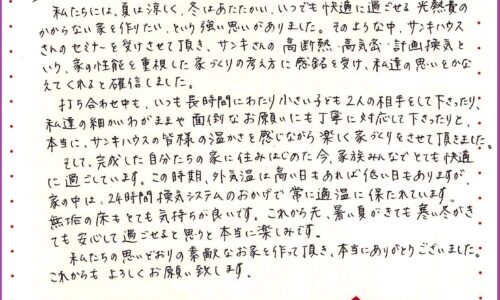 私たちには、夏は涼しく、冬はあたたかい、いつでも快適に過ごせる光熱費の
かからない家を作りたい、という強い思いがありました。そのような中、サンキハウス
さんのセミナーを受けさせて頂き、サンキさんの高断熱・高気密・計画換気と
いう、家の性能を重視した家づくりの考え方に感銘を受け、私達の思いをかな
えてくれると確信しました。
打ち合わせ中も、いつも長時間にわたり小さい子ども2人の相手をして下さったり、
私達の細かいわがままや面倒なお願いにも丁寧に対応して下さったりと、
本当に、サンキハウスの皆様の温かさを感じながら楽しく家づくりをさせて頂きました。
そして、完成した自分たちの家に住みはじめた今、家族みんなでとても快適
に過ごしています。この時期、外気温は高い日もあれば低い日もありますが、
家の中は、24時間換気システムのおかげで常に適温に保たれています。
無垢の床もとても気持ちが良いです。これから先、暑い夏がきても寒い冬がき
ても安心して過ごせると思うと本当に楽しみです。
私たちの思いどおりの素敵なお家を作って頂き、本当にありがとうございました。
これからもよろしくお願い致します。